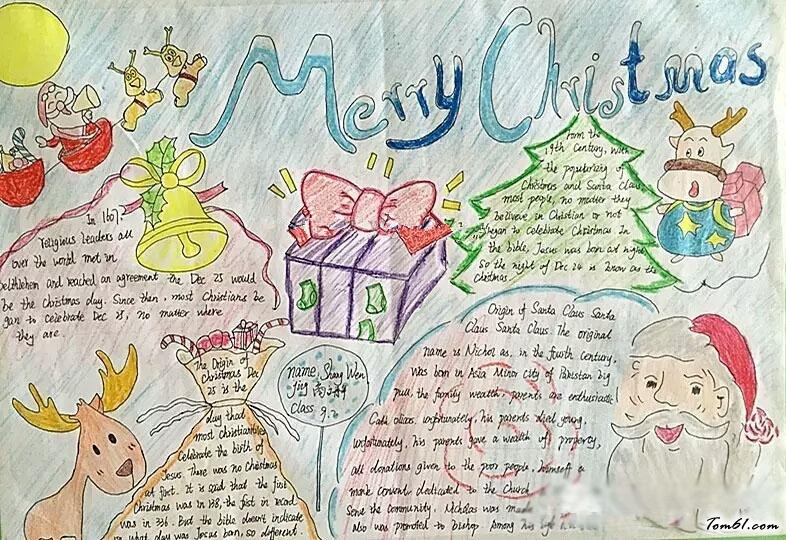 Merry Christmas
From the
19th Century, with
the popularizing of
Christmas and Santa Claus,
most people, no matter they
believe in Christian or not
began to celebrate Christmas In
the bible, Jesus was born at night,
so the night of Dec 24 is know as the
Christmas.
In 1607,
religious leaders all
over the world met in
bethlehem and reached an agreement the Dec 25 would
be the Christmas day. Since then, most Christians be
gan to celebrate Dec 25, no matter where
they are.
The Origin of
Christmas Dec
25 is the
day that
most Christianities
celebrate the birth of
Jesus. There was no Christmas
at first. It is said that the first
Christmas was in 138, the first in recod
was in 336. But the bible doesn't indicate
what day was Jesus born, so different.
name. Shang Wen
Jing
Class 9.2
Origin of Santa Claus Santa
Claus Santa Claus. The original
name is Nichol as, in the fourth Century,
was born in Asia Minor city of Pakistan big
pull, the family wealth, parents are enthusiastic
Catholics, unfortunately, his parents died young,
Unfortunately, his parents gave a wealth of property,
all donations given to the poor people, himself a
monk convent, dedicated to the Church
Serve the community. Nicholas was made
also was promoted to bishop Among his life
Tom61.com